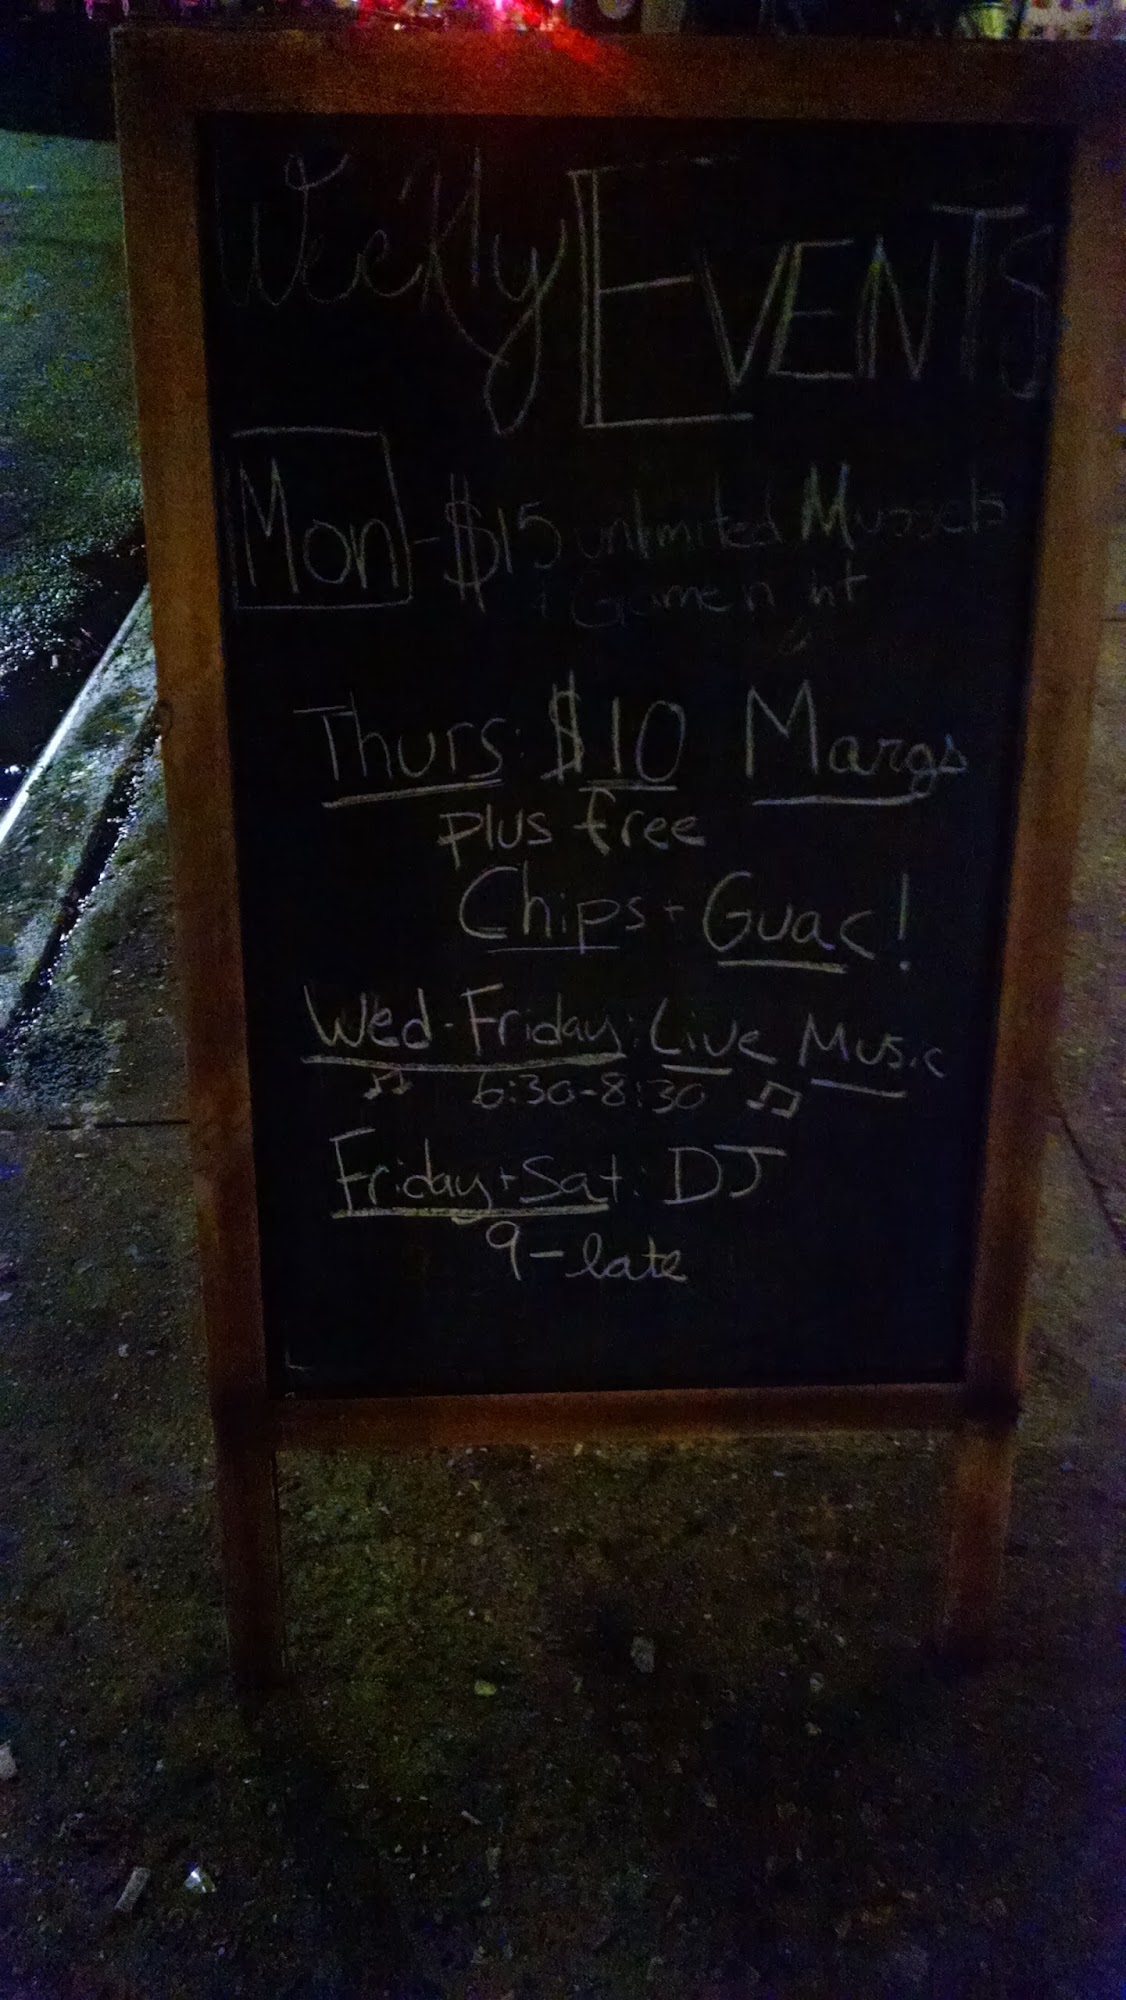 Weekly EVENTS
Mon - $15 unlimited Mussels
+ Game night
Thurs: $10 Margs
plus free
Chips + Guac!
Wed - Friday: Live Music
6:30-8:30
Friday + Sat: DJ
9 - late